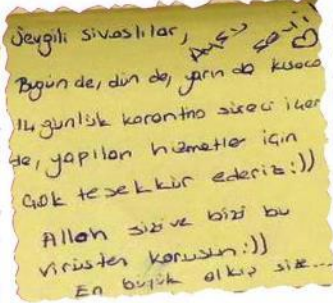 Sevgili sivaslılar,
Bugün de, dün de, yarın da kısaca
14 günlük karantina süreci içer
de, yapılan hizmetler için
çok teşekkür ederiz:))
Allah sizi ve bizi bu
virüsten korusun:))
En büyük alkış size...